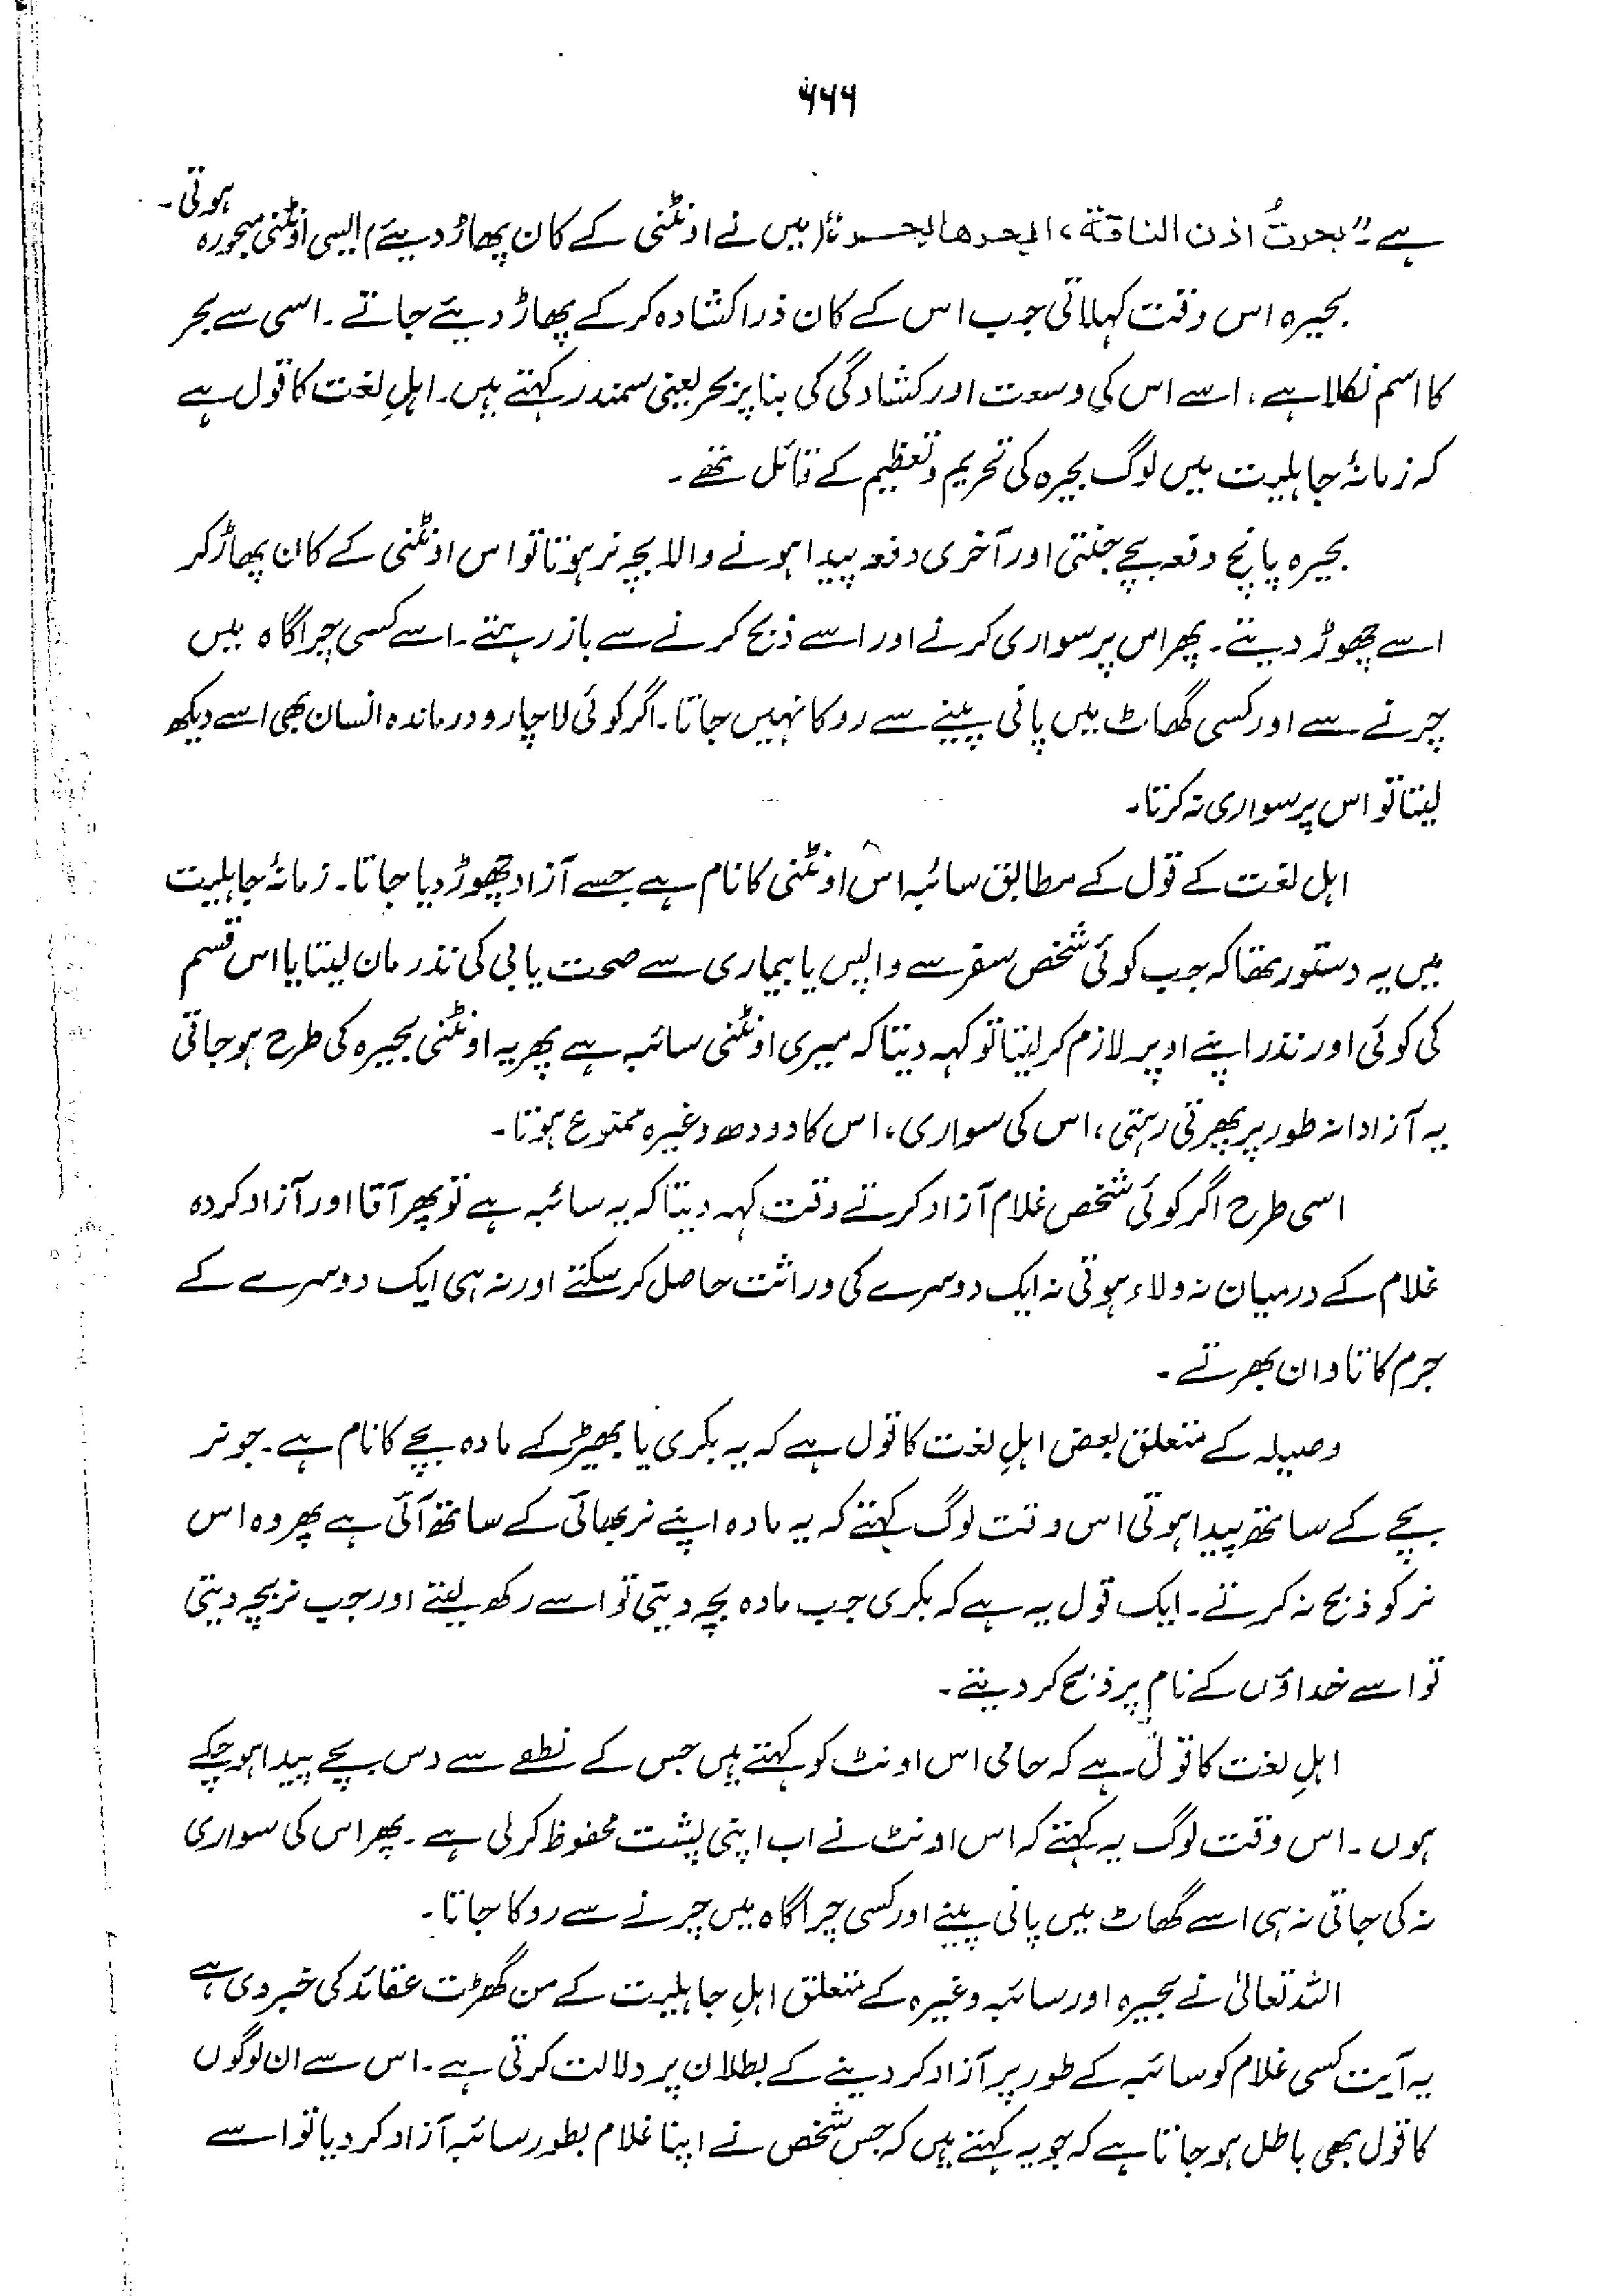 ۶۶۶
ہوتی۔
ہے۔ "بحرتُ اذن الناقة، ابحرها بحرا" (میں نے اونٹنی کے کان پھاڑ دیئے) ایسی اونٹنی مبحورہ
بحیرہ اس وقت کہلاتی جب اس کے کان ذرا کشادہ کر کے پھاڑ دیئے جاتے۔ اسی سے بحر
کا اسم نکلا ہے، اسے اس کی وسعت اور کشادگی کی بنا پر بحر یعنی سمندر کہتے ہیں۔ اہلِ لغت کا قول ہے
کہ زمانۂ جاہلیت میں لوگ بحیرہ کی تحریم و تعظیم کے قائل تھے۔
بحیرہ پانچ دفعہ بچے جنتی اور آخری دفعہ پیدا ہونے والا بچہ نر ہوتا تو اس اونٹنی کے کان پھاڑ کر
اسے چھوڑ دیتے۔ پھر اس پر سواری کرنے اور اسے ذبح کرنے سے باز رہتے۔ اسے کسی چراگاہ میں
چرنے سے اور کسی گھاٹ میں پانی پینے سے روکا نہیں جاتا۔ اگر کوئی لاچار و درماندہ انسان بھی اسے دیکھ
لیتا تو اس پر سواری نہ کرتا۔
اہل لغت کے قول کے مطابق سائبہ اس اونٹنی کا نام ہے جسے آزاد چھوڑ دیا جاتا۔ زمانۂ جاہلیت
میں یہ دستور تھا کہ جب کوئی شخص سفر سے واپس یا بیماری سے صحت یابی کی نذر مان لیتا یا اس قسم
کی کوئی اور نذر اپنے اوپر لازم کر لیتا تو کہہ دیتا کہ میری اونٹنی سائبہ ہے پھر یہ اونٹنی بحیرہ کی طرح ہو جاتی
یہ آزادانہ طور پر پھرتی رہتی، اس کی سواری، اس کا دودھ وغیرہ ممنوع ہوتا۔
اسی طرح اگر کوئی شخص غلام آزاد کرتے وقت کہہ دیتا کہ یہ سائبہ ہے تو پھر آقا اور آزاد کردہ
غلام کے درمیان نہ ولاء ہوتی نہ ایک دوسرے کی وراثت حاصل کر سکتے اور نہ ہی ایک دوسرے کے
جرم کا تاوان بھرتے۔
وصیلہ کے متعلق بعض اہلِ لغت کا قول ہے کہ یہ بکری یا بھیڑ کے مادہ بچے کا نام ہے۔ جو نر
بچے کے ساتھ پیدا ہوتی اس وقت لوگ کہتے کہ یہ مادہ اپنے نر بھائی کے ساتھ آئی ہے پھر وہ اس
نر کو ذبح نہ کرتے۔ ایک قول یہ ہے کہ بکری جب مادہ بچہ دیتی تو اسے رکھ لیتے اور جب نر بچہ دیتی
تو اسے خداؤں کے نام پر ذبح کر دیتے۔
اہلِ لغت کا قول ہے کہ حامی اس اونٹ کو کہتے ہیں جس کے نطفے سے دس بچے پیدا ہو چکے
ہوں۔ اس وقت لوگ یہ کہتے کہ اس اونٹ نے اب اپنی پشت محفوظ کر لی ہے۔ پھر اس کی سواری
نہ کی جاتی نہ ہی اسے گھاٹ میں پانی پینے اور کسی چراگاہ میں چرنے سے روکا جاتا۔
اللہ تعالیٰ نے بحیرہ اور سائبہ وغیرہ کے متعلق اہلِ جاہلیت کے من گھڑت عقائد کی خبر دی ہے
یہ آیت کسی غلام کو سائبہ کے طور پر آزاد کر دینے کے بطلان پر دلالت کرتی ہے۔ اس سے ان لوگوں
کا قول بھی باطل ہو جاتا ہے کہ جو یہ کہتے ہیں کہ جس شخص نے اپنا غلام بطور سائبہ آزاد کر دیا تو اسے